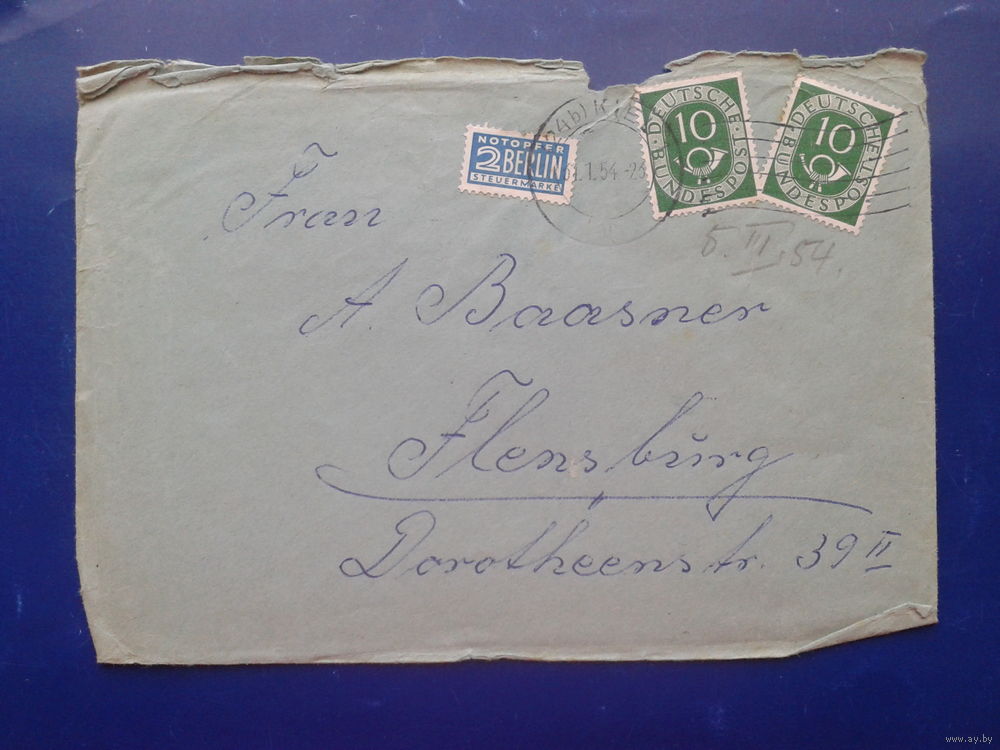 NOTOPFER
2 BERLIN
STEUERMARKE
(24b) KIE
1.54 -23
DEUTSCHE BUNDESPOST
10
DEUTSCHE BUNDESPOST
10
5.III.54.
Frau
A. Baasner
Flensburg
Dorotheenstr. 39 II
www.ay.by